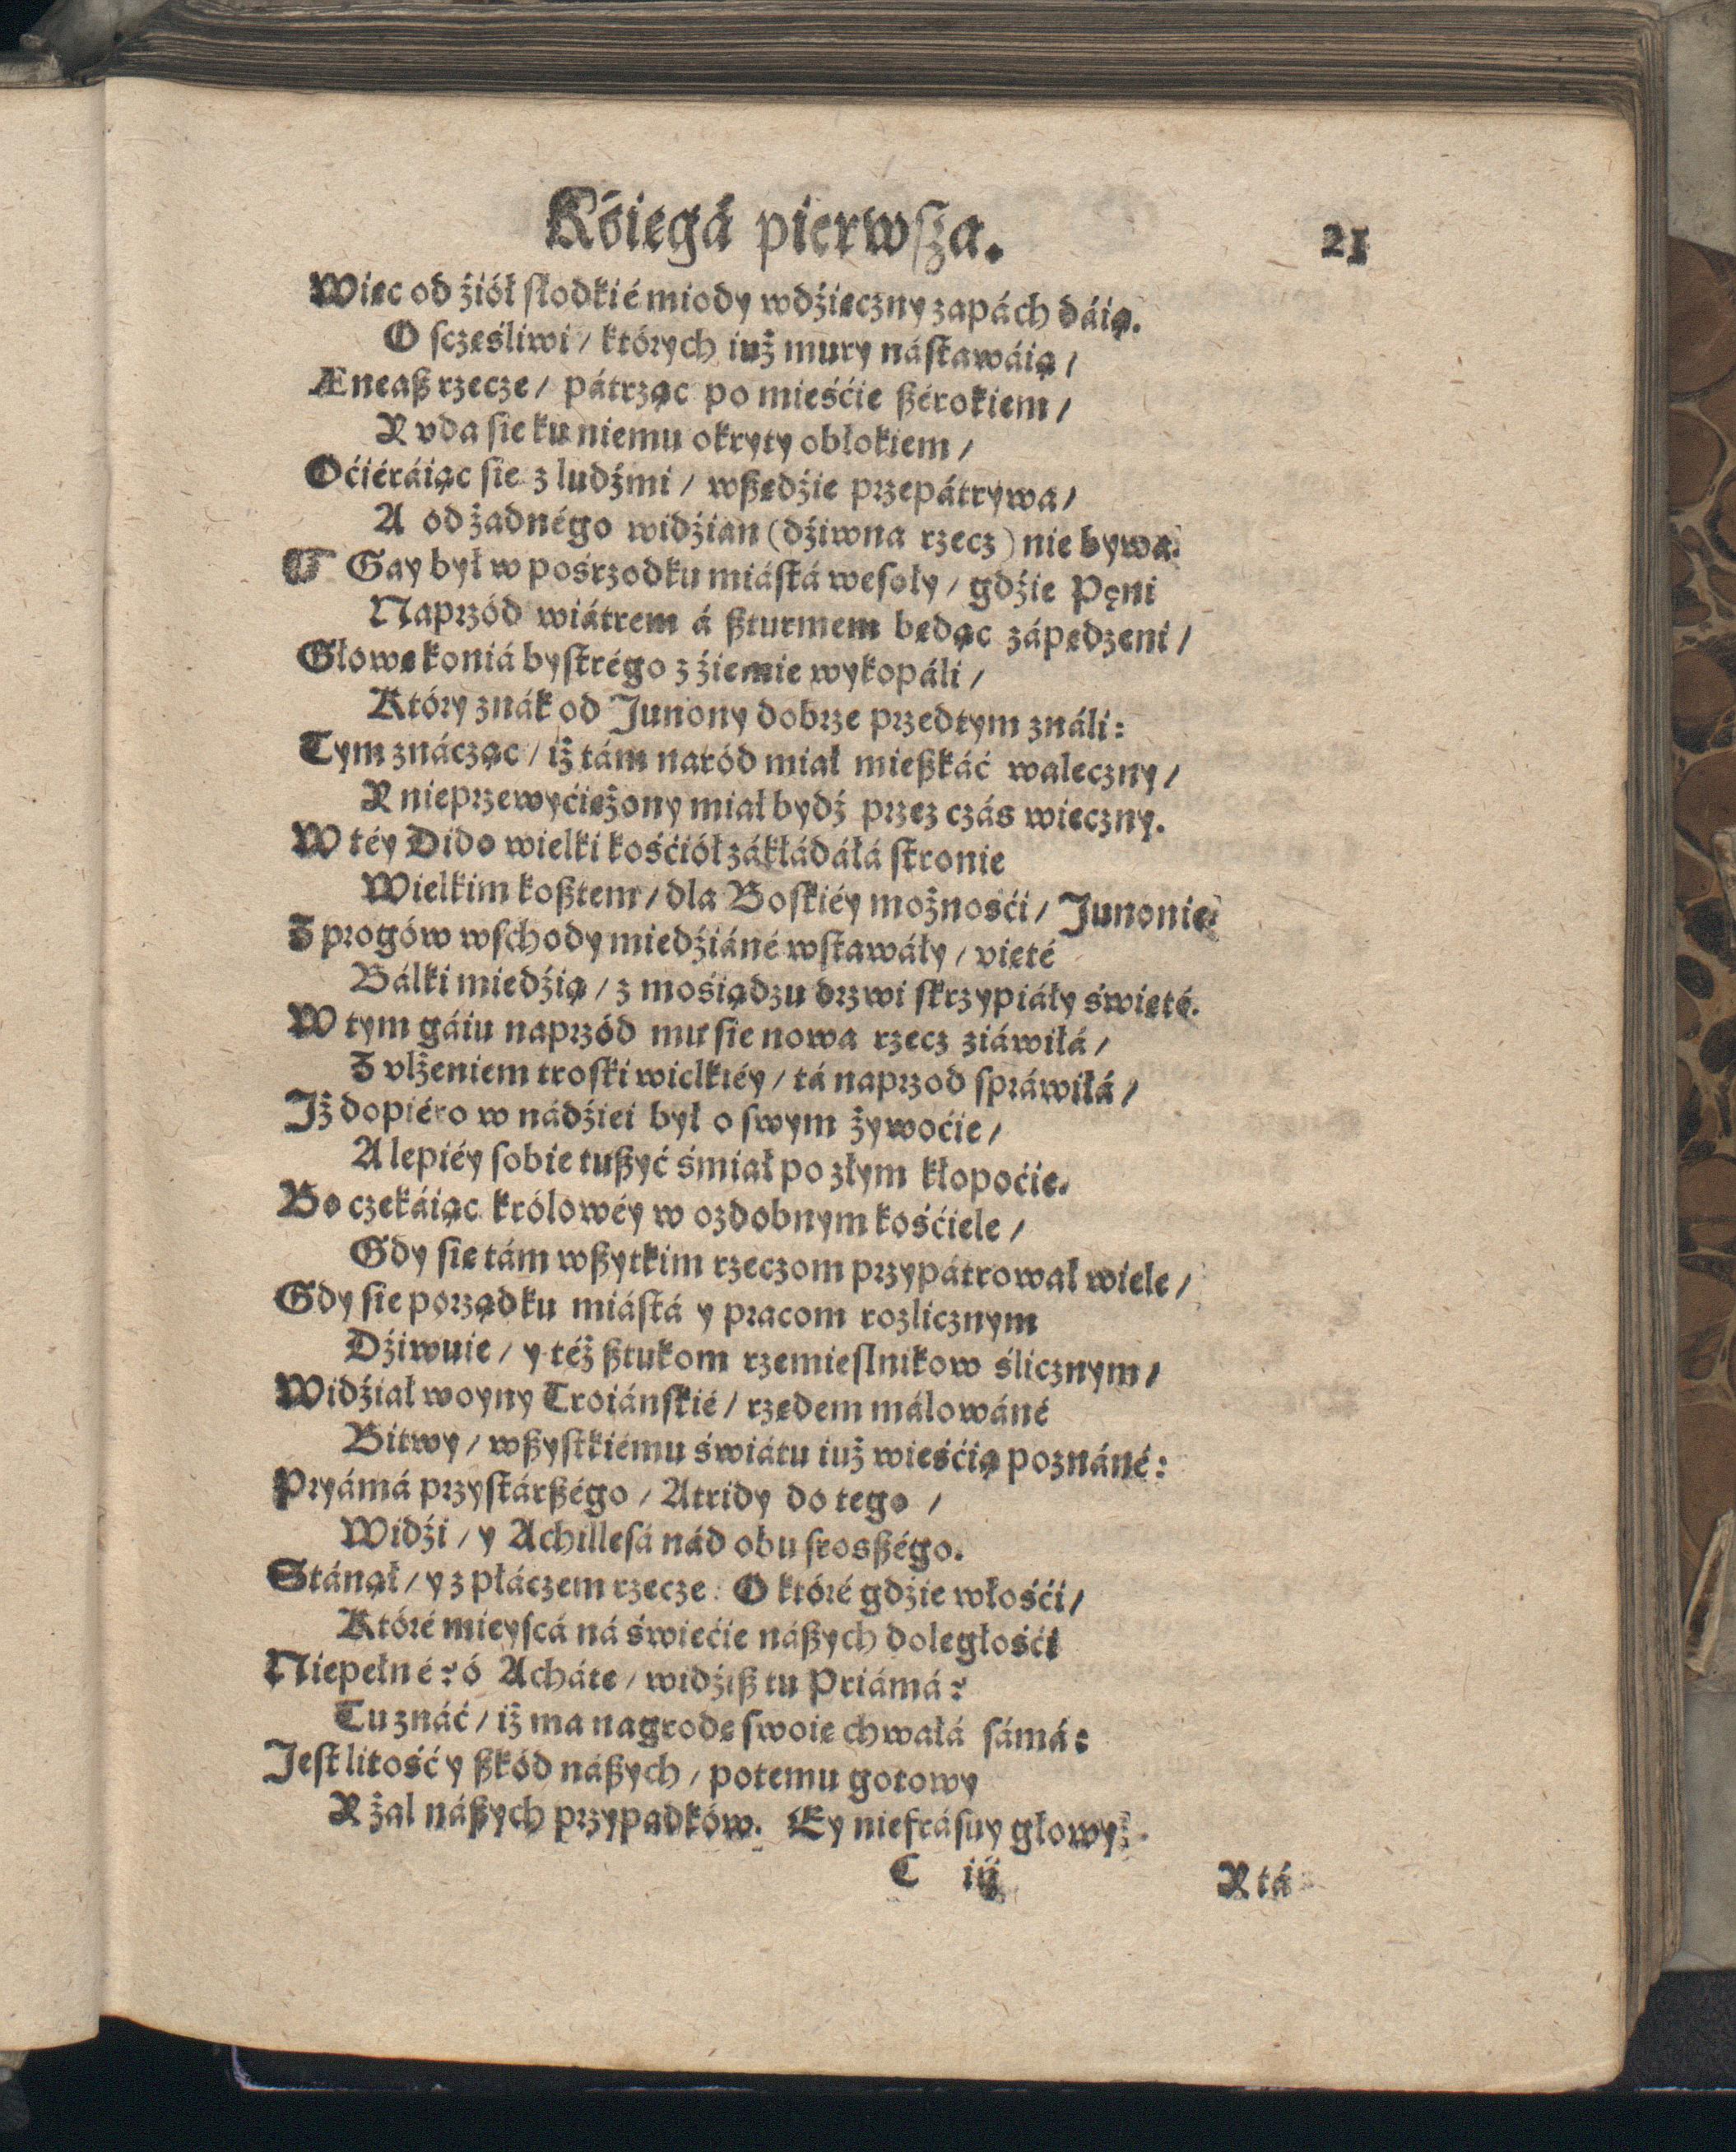 Kśięgá pierwſza.
21
Więc od źiół ſłodkié miody wdźięczny zapách dáią.
O ſczęśliwi / których iuż mury náſtawáią /
Æneaß rzecze / pátrząc po mieśćie ßérokiem /
Y vda ſie ku niemu okryty obłokiem /
Oćiéráiąc ſie z ludźmi / wßędźie przepátrywa /
A od żadnégo widźian (dźiwna rzecz) nie bywa.
¶ Gay był w pośrzodku miáſtá weſoły / gdźie Pęni
Naprzód wiátrem á ßturmem będąc zápędzeni /
Głowę koniá byſtrégo z źiemie wykopáli /
Który znák od Junony dobrze przedtymználi:
Tym znácząc / iż tám naród miał mießkáć waleczny /
Y nieprzewyćiężony miał bydź przez czás wieczny.
W téy Dido wielki kośćiół zákłádáłá ſtronie
Wielkim koßtem / dla Boſkiéy możnośći / Junonie.
Z progów wſchody miedźiáné wſtawáły / vięté
Bálki miedźią / z mośiądzu drzwi ſkrzypiáły święté.
W tym gáiu naprzód mu ſie nowa rzecz ziáwiłá /
Z vlżeniem troſki wielkiéy / tá naprzod ſpráwiłá /
Jż dopiéro w nádźiei był o ſwym żywoćie /
A lepiéy ſobie tußyć śmiał po złym kłopoćie.
Bo czekáiąc królowéy w ozdobnym kośćiele /
Gdy ſie tám wßytkim rzeczom przypátrował wiele /
Gdy ſie porządku miáſtá y pracom rozlicznym
Dźiwuie / y téż ßtukom rzemieſlnikow ślicznym /
Widźiał woyny Troiánſkié / rzędem málowáné
Bitwy / wßyſtkiému świátu iuż wieśćią poznáné:
Pryámá przyſtárßégo / Atridy do tego /
Widźi / y Achilleſá nád obu ſrosßégo.
Stánął / y z płáczem rzecze: O któré gdźie włośći /
Któré mieyſcá ná świećie náßych doległośći
Niepełné? ó Acháte / widźiß tu Priámá?
Tu znáć / iż ma nagrodę ſwoię chwałá ſámá:
Jeſt litość y ßkód náßych / potemu gotowy
Y żal náßych przypadków. Ey niefráſuy głowy:
C iij
Y tá